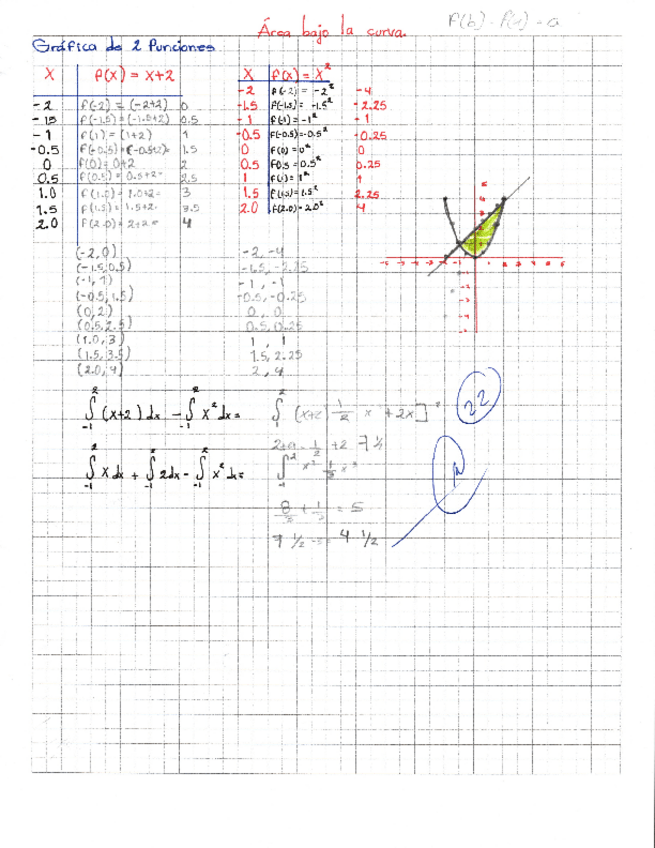 Área bajo la curva.
Gráfica de 2 Funciones
X F(x) = x+2
-2 F(-2) = (-2+2) 0
-1.5 F(-1.5) = (-1.5+2) 0.5
-1 F(1) = (1+2) 1
-0.5 F(-0.5) = (-0.5+2)= 1.5
0 F(0) = 0+2 2
0.5 F(0.5) = 0.5+2= 2.5
1.0 F(1.0) = 1.0+2= 3
1.5 F(1.5) = 1.5+2. 3.5
2.0 F(2.0) = 2+2= 4
X F(x) = X²
-2 F(-2) = -2² -4
-1.5 F(-1.5) = -1.5² -2.25
-1 F(-1) = -1² -1
-0.5 F(-0.5)=-0.5² -0.25
0 F(0) = 0² 0
0.5 F0.5 = 0.5² 0.25
1 F(1) = 1² 1
1.5 F(1.5) = 1.5² 2.25
2.0 F(2.0) = 2.0² 4
(-2,0)
(-1.5,0.5)
(-1,1)
(-0.5,1.5)
(0,2)
(0.5,2.5)
(1.0,3)
(1.5,3.5)
(2.0,4)
-2,-4
-1.5,-2.25
-1,-1
-0.5,-0.25
0,0
0.5,0.25
1,1
1.5,2.25
2,4
∫₋₁² (x+2) dx - ∫₋₁² x² dx =
∫₋₁² x dx + ∫₋₁² 2dx - ∫₋₁² x² dx =
8 + 1 = 5
7 ½ 4 ½
22